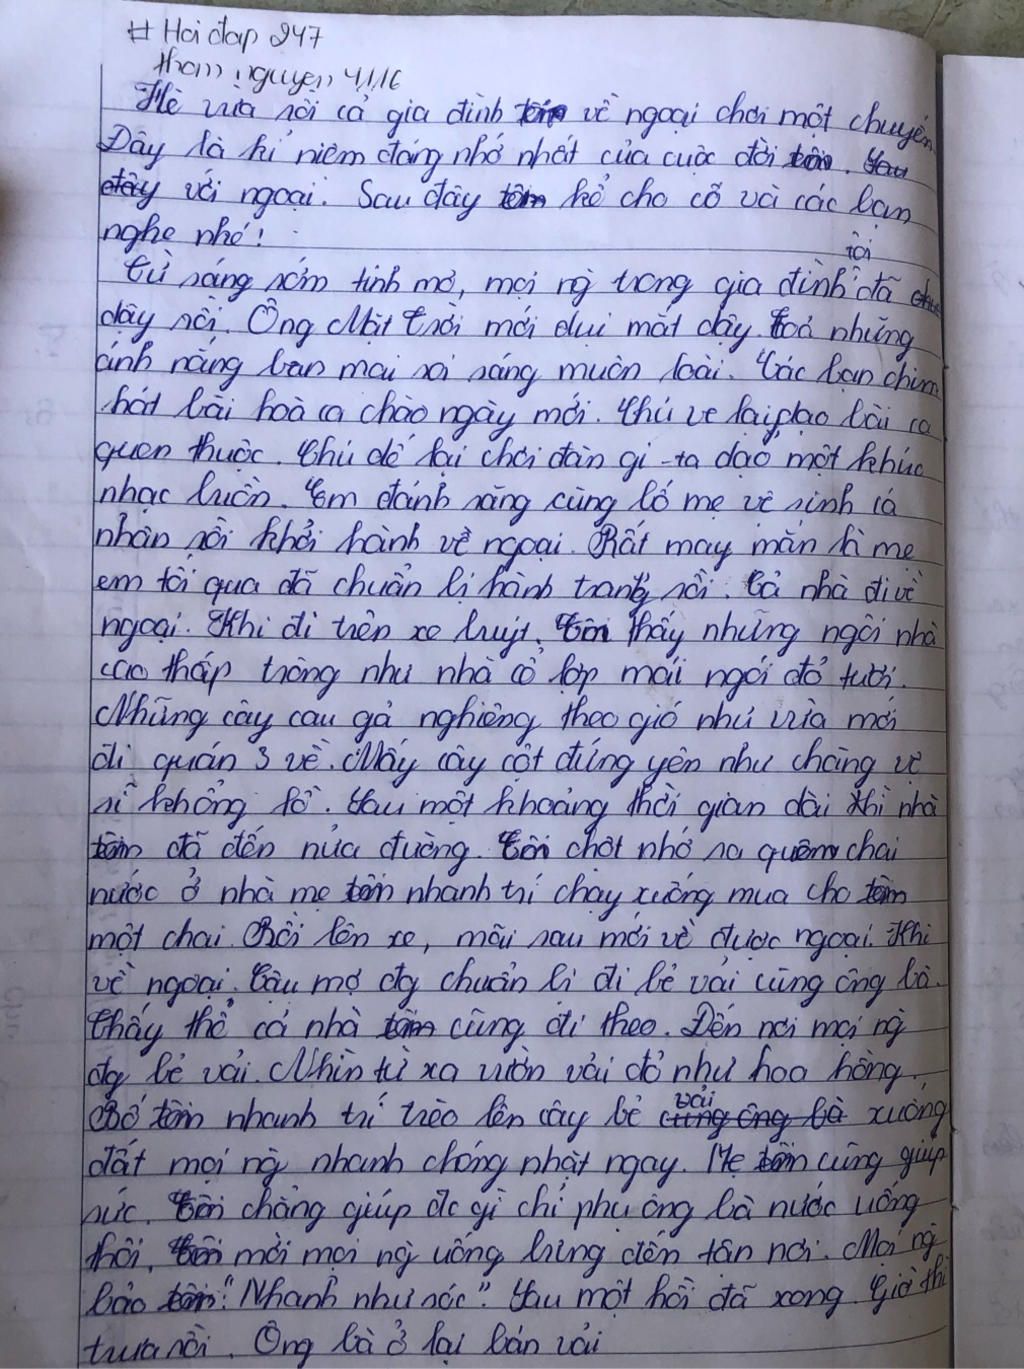 # Hoi đap 247
tham nguyen 4116
Hè vừa rồi cả gia đình tôi về ngoại chơi một chuyến.
Đây là kỉ niệm đáng nhớ nhất của cuộc đời tôi. Sau
đây với ngoại. Sau đây tôi kể cho cô và các bạn
nghe nhé!
tôi
Từ sáng sớm tinh mơ, mọi ng̀ trong gia đình đã
dậy rồi. Ông Mặt Trời mới dụi mắt dậy toả những
ánh nắng ban mai soi sáng muôn loài. Các bạn chim
hát bài hoà ca chào ngày mới. Chú ve lại dạo bài ca
quen thuộc. Chú dế lại chơi đàn gi-ta dạo một khúc
nhạc buồn. Em đánh răng cùng bố mẹ vệ sinh cá
nhân rồi khởi hành về ngoại. Rất may mắn là mẹ
em tối qua đã chuẩn bị hành trang rồi. Cả nhà đi về
ngoại. Khi đi trên xe buýt, tôi thấy những ngôi nhà
cao thấp trông như nhà cổ lợp mái ngói đỏ tươi.
Những cây cau gả nghiêng theo gió như vừa mới
đi quán 3 về. Mấy cây cột đứng yên như chàng vệ
sĩ khổng lồ. Sau một khoảng thời gian dài thì nhà
tôi đã đến nửa đường. Tôi chợt nhớ ra quên chai
nước ở nhà mẹ tôi nhanh trí chạy xuống mua cho tôi
một chai. Rồi lên xe, mãi sau mới về được ngoại. Khi
về ngoại. Cậu mợ đg chuẩn bị đi bẻ vải cùng ông bà.
Thấy thế cả nhà tôi cũng đi theo. Đến nơi mọi ng̀
đg bẻ vải. Nhìn từ xa vườn vải đỏ như hoa hồng.
Bố tôi nhanh trí trèo lên cây bẻ vải cùng ông bà xuống
đất mọi ng̀ nhanh chóng nhặt ngay. Mẹ tôi cũng giúp
sức. Tôi chẳng giúp đc gì chỉ phụ ông bà nước uống
thôi, tôi mời mọi ng̀ uống bưng đến tận nơi. Mọi ng̀
bảo tôi: "Nhanh như sóc". Sau một hồi đã xong. Giờ thì
trưa rồi. Ông bà ở lại bán vải